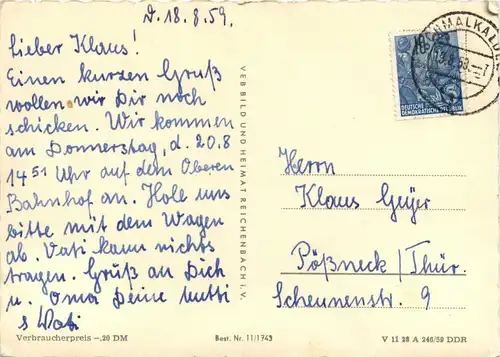 d. 18.8.59.
Lieber Klaus!
Einen kurzen Gruß
wollen wir Dir noch
schicken. Wir kommen
am Donnerstag, d. 20.8
14⁵¹ Uhr auf dem Oberen
Bahnhof an. Hole uns
bitte mit dem Wagen
ab. Vati kann nichts
tragen. Gruß an Dich
u. Oma Deine Mutti
Vati
Verbraucherpreis –,20 DM
VEB BILD UND HEIMAT REICHENBACH I. V.
Best. Nr. 11/1743
SCHMALKALDEN
DEUTSCHE
DEMOKRATISCHE REPUBLIK
Herrn
Klaus Geyer
Pößneck/Thür.
Scheunenstr. 9
V 11 28 A 246/59 DDR